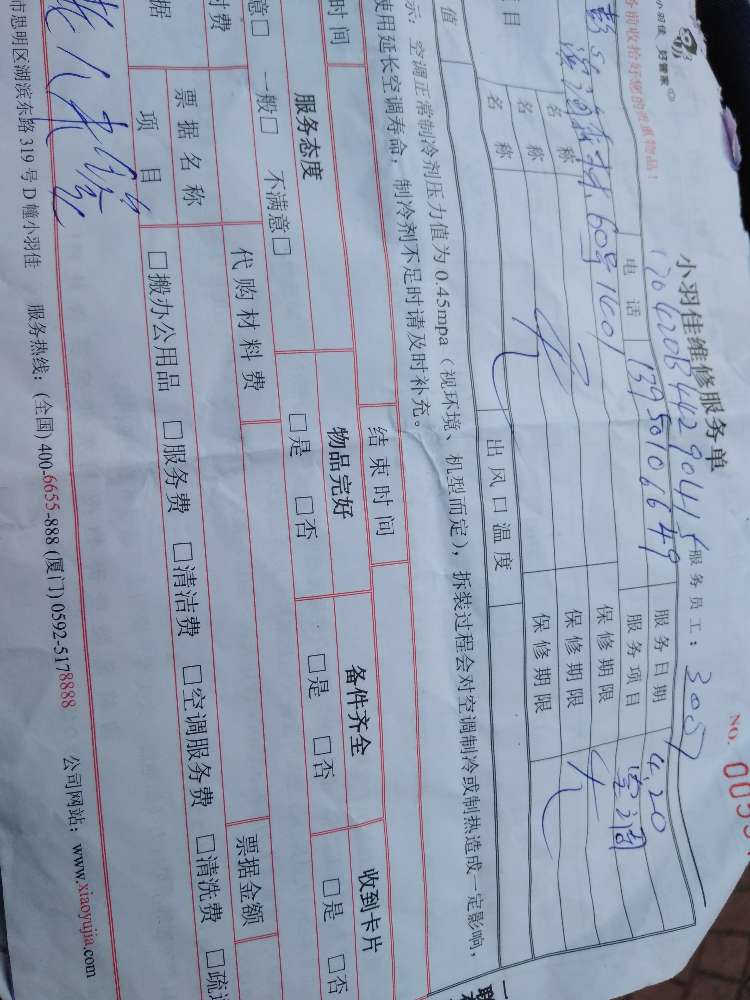 小羽佳 好管家
务前收拾好您的贵重物品!
小羽佳维修服务单
NO. 005
服务员工: 3057
电话 13950106649
服务日期 4.20
60号1601
服务项目 空调
名称 保修期限
名称 保修期限
名称 保修期限
值 出风口温度
示: 空调正常制冷剂压力值为0.45mpa(视环境、机型而定), 拆装过程会对空调制冷或制热造成一定影响,
使用延长空调寿命, 制冷剂不足时请及时补充。
时间 结束时间
服务态度 物品完好 备件齐全 收到卡片
意□ 一般□ 不满意□ □是 □否 □是 □否 □是 □否
付费 代购材料费 票据金额
据 票据名称
项目 □搬办公用品 □服务费 □清洁费 □空调服务费 □清洗费 □疏
市思明区湖滨东路319号D幢小羽佳 服务热线: (全国) 400-6655-888 (厦门) 0592-5178888 公司网站: www.xiaoyujia.com